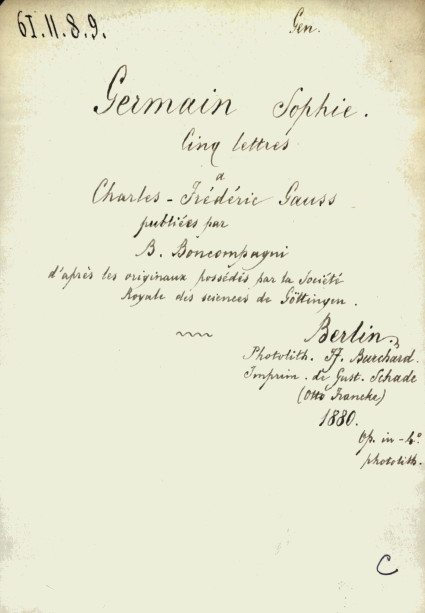 61.11.8.9.
Gen.
Germain Sophie.
Cinq lettres
a
Charles-Frédéric Gauss
publiées par
B. Boncompagni
d'après les originaux possédés par la Société
Royale des sciences de Göttingen.
Berlin.
Photolith. H. Burchard.
Imprim. de Gust. Schade
(Otto Francke)
1880.
Op. in-4.º
photolith.
C